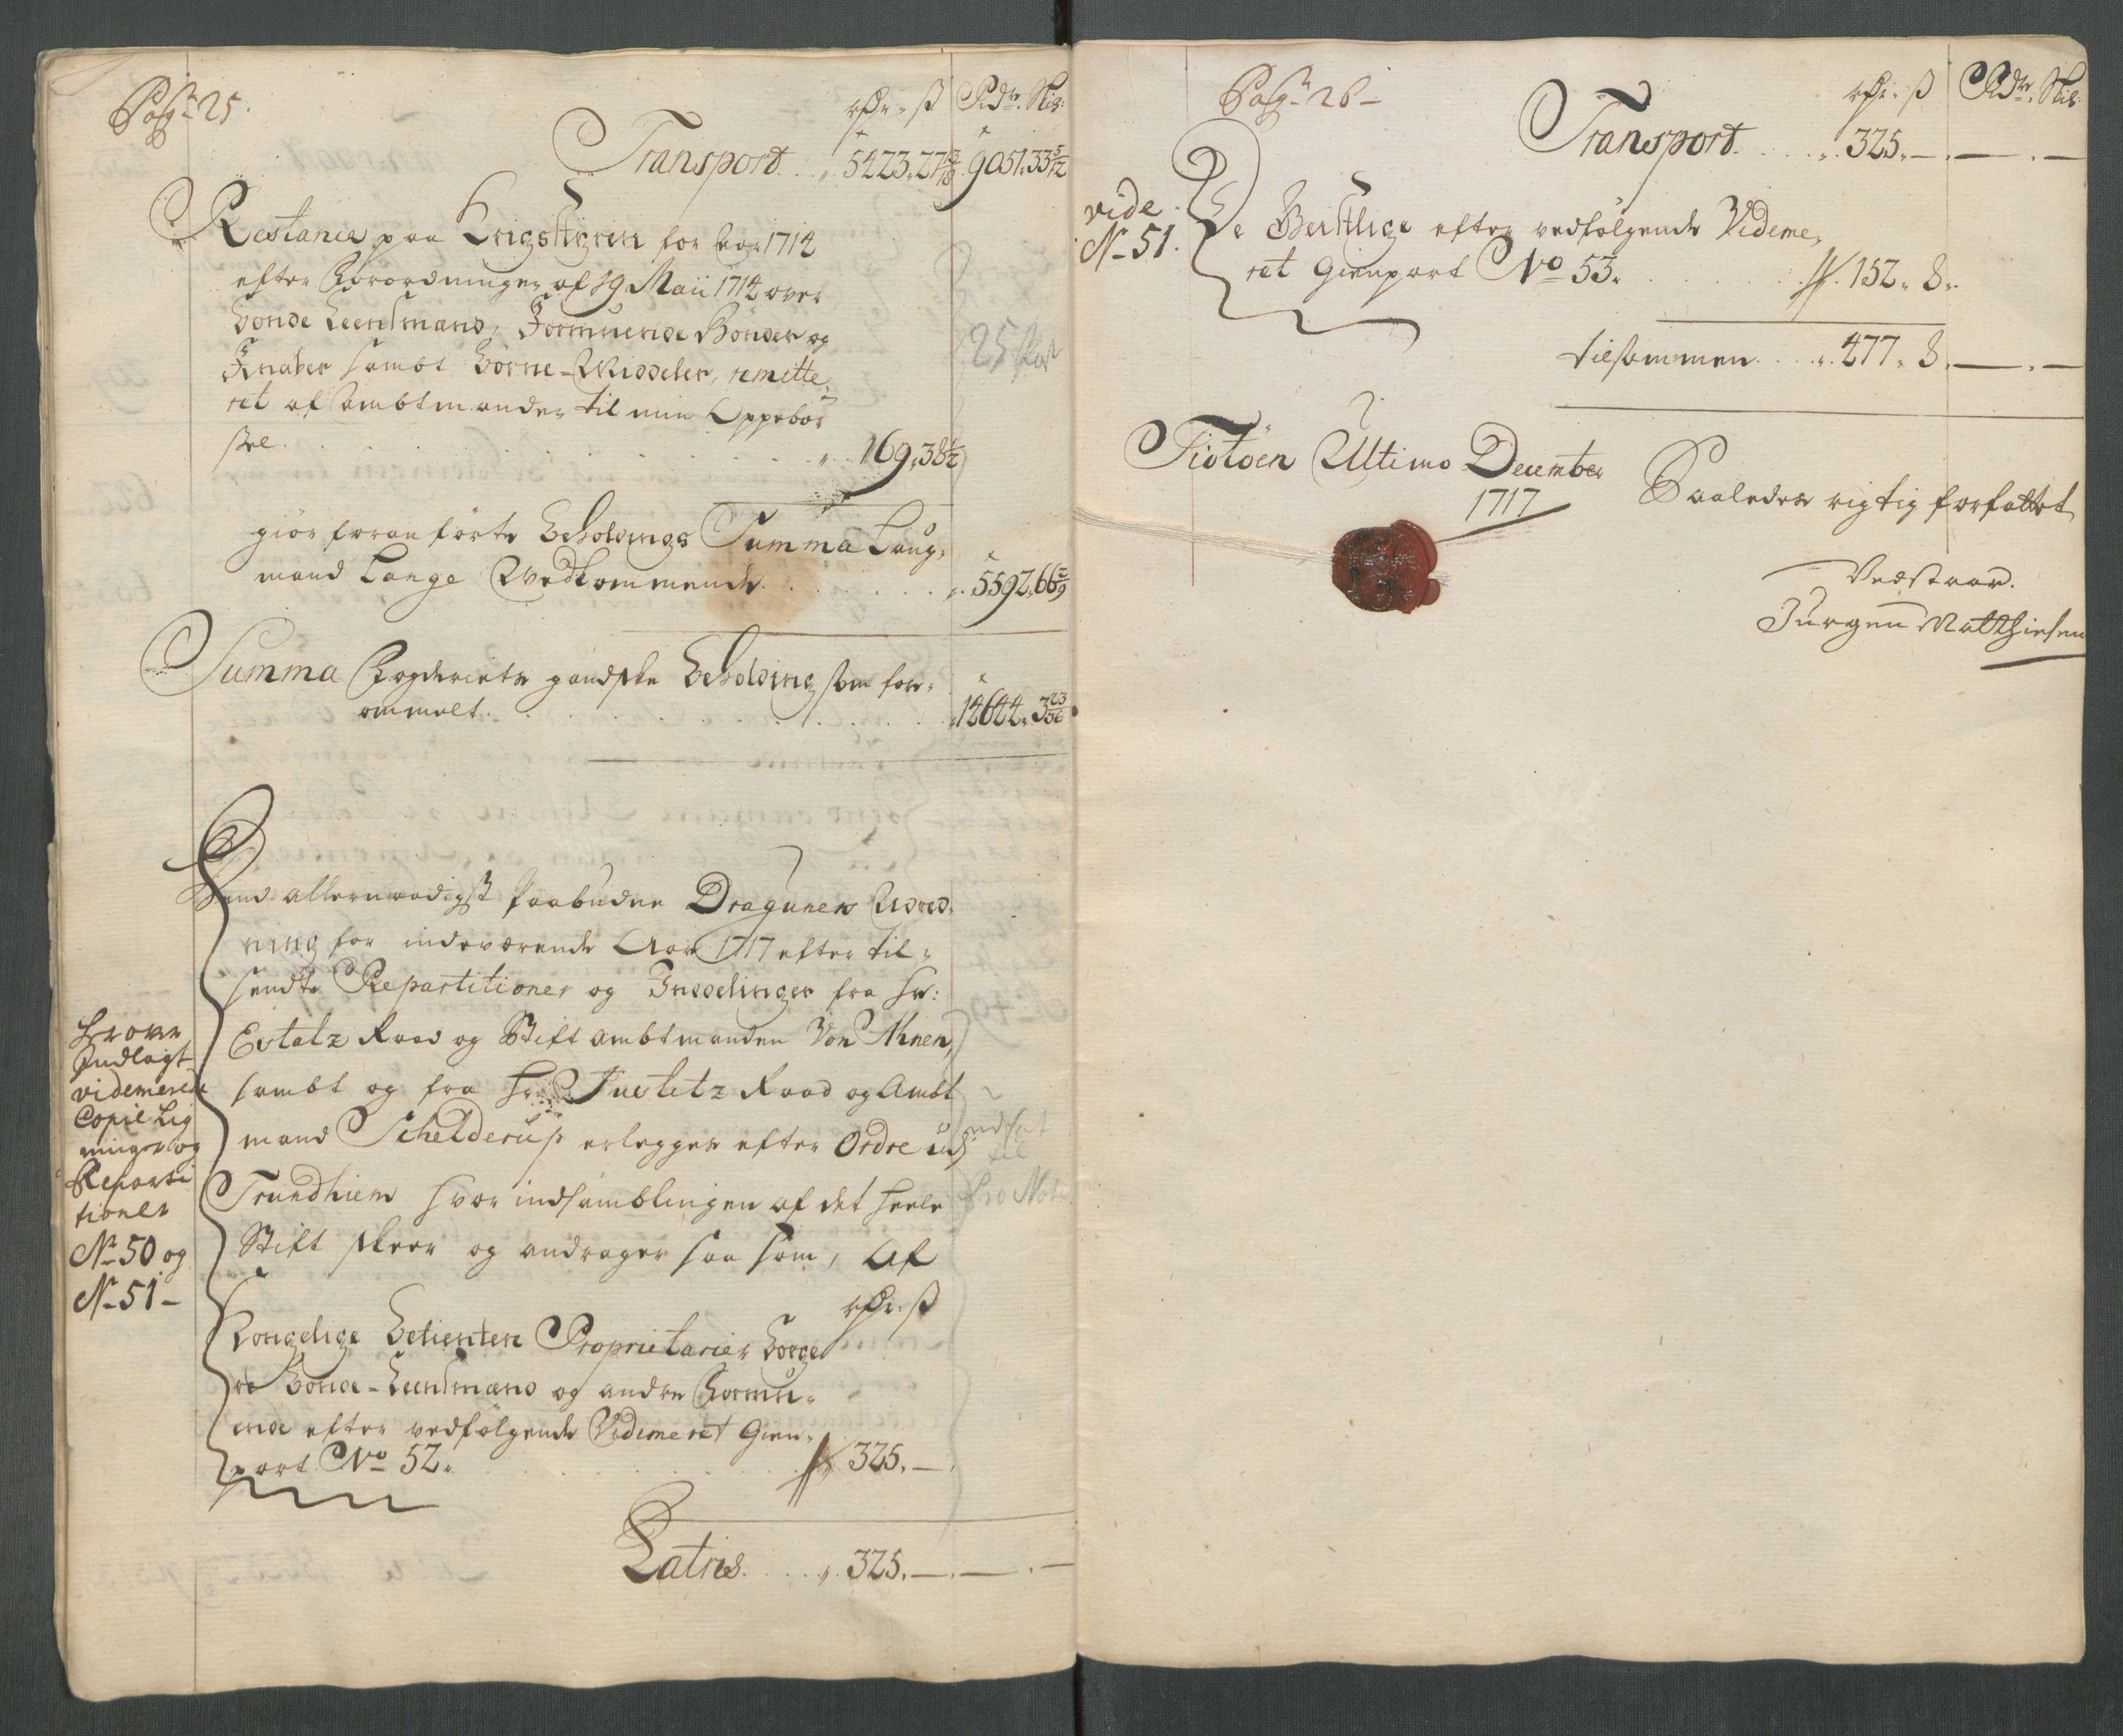 Pag: 25.
rdr. ß Rdr. Skil:
Transport. . „ 5423. 27 9051. 33 5/12
Restance paa Krigsstyren for Aar 1714
efter Forordningen af 19 Maii 1714 over
bonde Leensmænd, Formuende Bönder og
Knaber sambt börne-Middeler, remitte„
ret af Ambtmanden til min Oppebör„
sel. . . . . . . „ 169. 38 1/2
giör foranförte beholdnings Summa Laug„
mand Lange Vedkommende. . . . „ 5592. 66 2/9
Summa Fogderiets gandske beholdning som for„
ommelt. . . . . . . „ 14644. 3 23/36
25 Post
Dend allernaadigst Paabudne Dragunen Udred„
ning for indeværende Aar 1717 efter til„
sendte Repartitioner og Inddelinger fra Hr:
Etatz Raad og Stiftambtmanden Von Ahnen,
sambt og fra Hr: Justitz Raad og Ambt
mand Schelderup erlegges efter Ordre udj
Trundhiem hvor indsamblingen af det heele
Stift skeer og andrager saa som, Af
herover
Indlagt
videmerede
Copie Lig
ninger og
Reparti
tioner
No 50 og
No 51 -
pro Nota
rdr. ß
Kongelige betienter Proprietarier borge
re bonde-Leensmænd og andre Formu„
ende efter vedfölgende Videmeret Gien„
part No 52. . . . . 325. —
Latus. . . . „ 325. — . — . —
Pag: 26 -
rdr. ß Rdr. Skil:
Transport. . . . „ 325. — . — . —
vide
No 51.
De Geistlige efter vedfölgende Videme„
ret Gienpart No 53. . . . 152. 8.
tilsammen. . . „ 477. 8. — . —
Tiötöen Ultimo December
1717
Saaledes rigtig forfattet
Vedstaar.
Jurgen Matthiesen